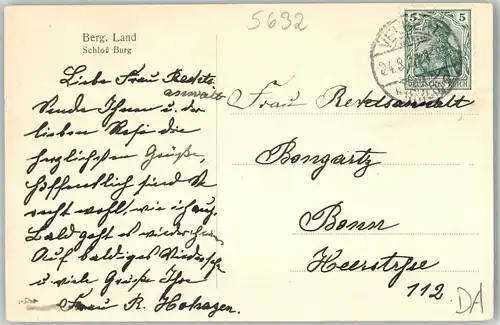 5632
Berg. Land
Schloß Burg
5 5
DEUTSCHES REICH
VELBERT
24.8.
Liebe Frau Rechts-
anwalt
Sende Ihnen u. der
lieben Rosi die
herzlichsten Grüße,
hoffentlich sind Sie
recht wohl, wie ich auch.
Bald geht es wieder heim
Auf baldiges Wiedersehn
u viele Grüße Ihre
Frau R. Hohagen.
Frau Rechtsanwalt
Bongartz
Bonn
Heerstraße
112.
DA